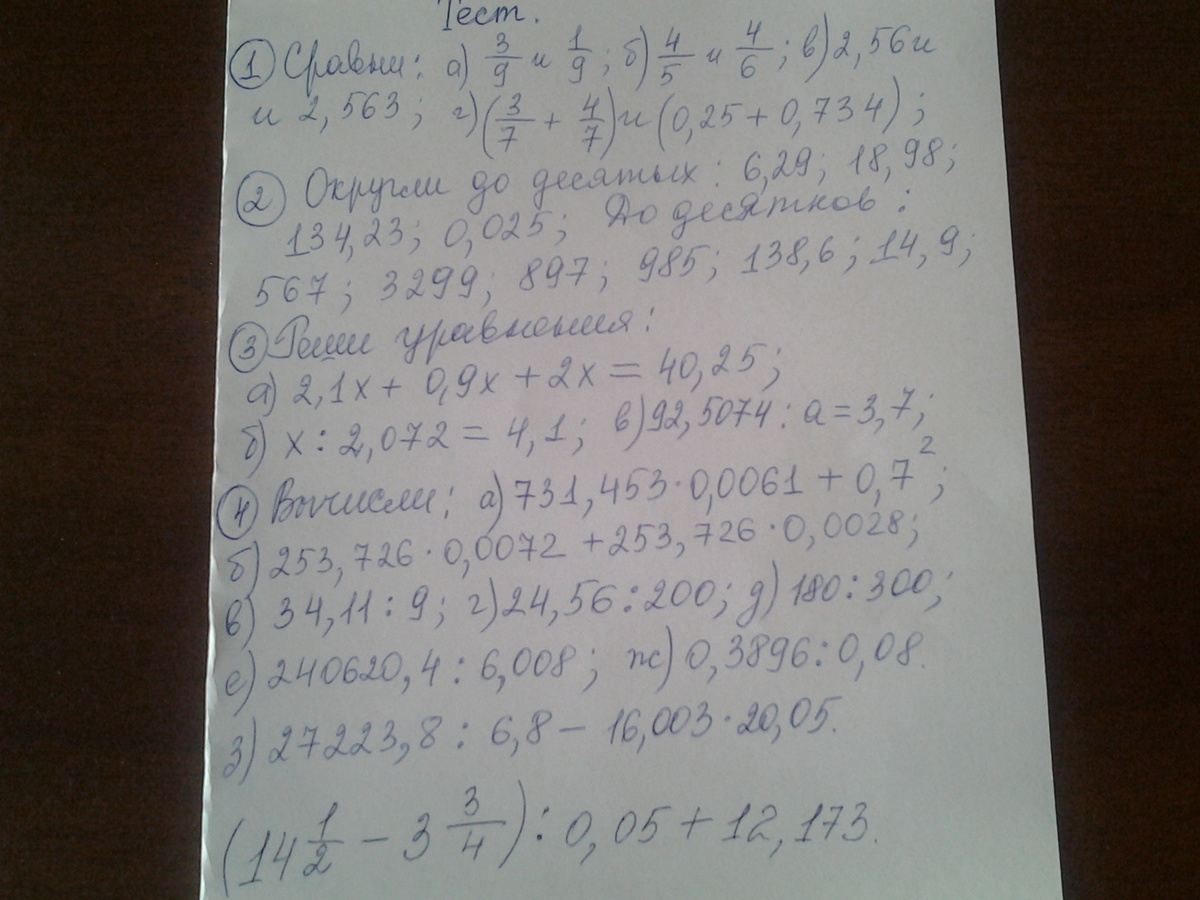 Тест.
① Сравни: а) 3/9 и 1/9; б) 4/5 и 4/6; в) 2,56 и
и 2,563; г) (3/7 + 4/7) и (0,25 + 0,734);
② Округли до десятых: 6,29; 18,98;
134,23; 0,025; До десятков:
567; 3299; 897; 985; 138,6; 14,9;
③ Реши уравнения:
а) 2,1x + 0,9x + 2x = 40,25;
б) x : 2,072 = 4,1; в) 92,5074 : a = 3,7;
④ Вычисли: а) 731,453 · 0,0061 + 0,7²;
б) 253,726 · 0,0072 + 253,726 · 0,0028;
в) 34,11 : 9; г) 24,56 : 200; д) 180 : 300;
е) 240620,4 : 6,008; ж) 0,3896 : 0,08.
з) 27223,8 : 6,8 − 16,003 · 20,05.
(14 1/2 − 3 3/4) : 0,05 + 12,173.